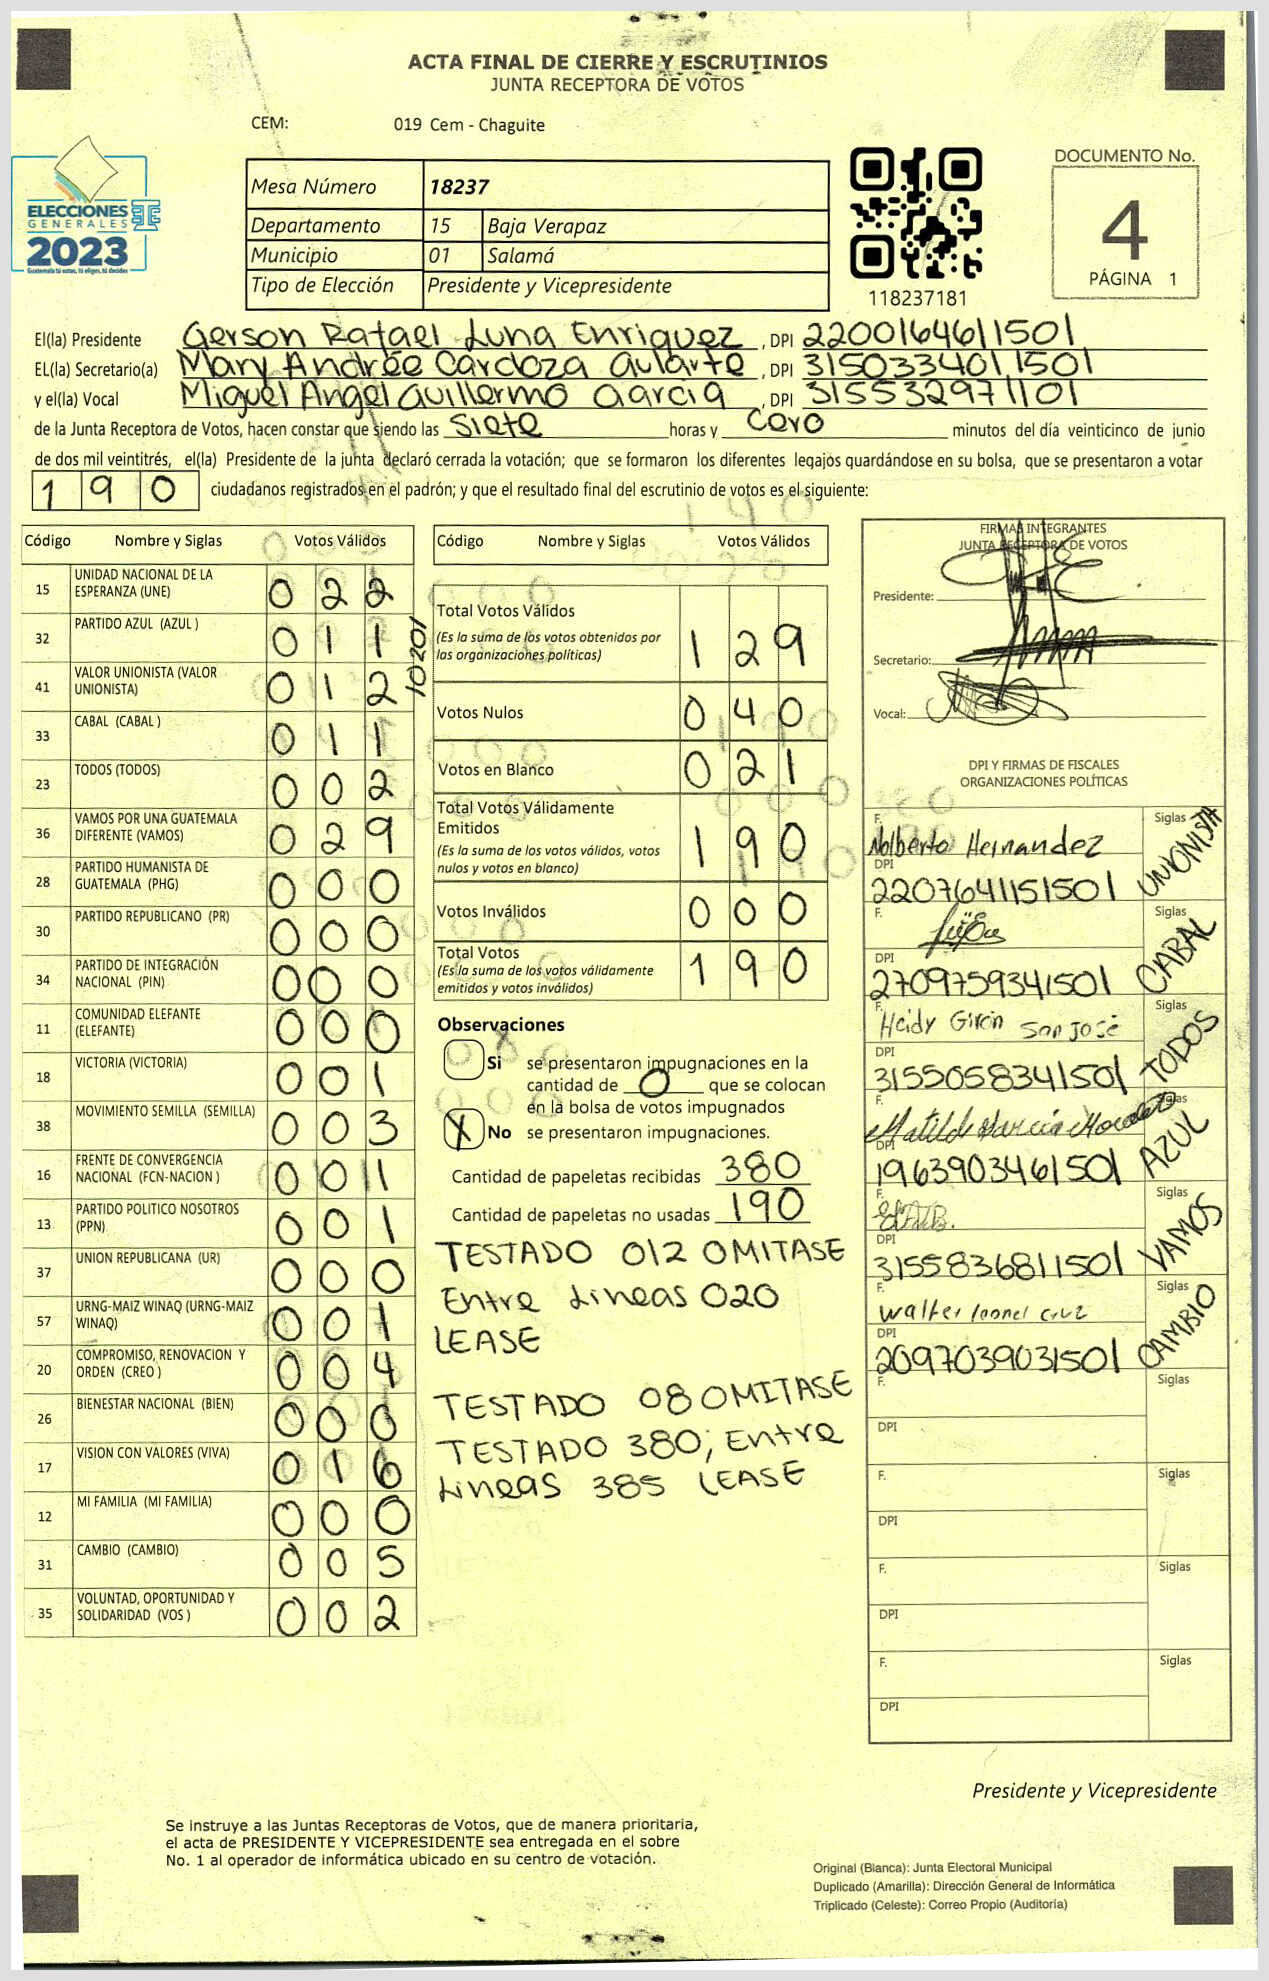 ACTA FINAL DE CIERRE Y ESCRUTINIOS
JUNTA RECEPTORA DE VOTOS
CEM: 019 Cem - Chaguite
ELECCIONES
GENERALES
2023
Guatemala tú votas, tú eliges, tú decides
Mesa Número 18237
Departamento 15 Baja Verapaz
Municipio 01 Salamá
Tipo de Elección Presidente y Vicepresidente
118237181
DOCUMENTO No.
4
PÁGINA 1
El(la) Presidente Gerson Rafael Luna Enriquez, DPI 2200164611501
EL(la) Secretario(a) Mary Andrée Cardoza Aularte, DPI 3150334011501
y el(la) Vocal Miguel Angel Guillermo Garcia, DPI 3155329711101
de la Junta Receptora de Votos, hacen constar que siendo las Siete horas y Cero minutos del día veinticinco de junio
de dos mil veintitrés, el(la) Presidente de la junta declaró cerrada la votación; que se formaron los diferentes legajos guardándose en su bolsa, que se presentaron a votar
190 ciudadanos registrados en el padrón; y que el resultado final del escrutinio de votos es el siguiente:
Código Nombre y Siglas Votos Válidos
15 UNIDAD NACIONAL DE LA
ESPERANZA (UNE) 022
32 PARTIDO AZUL (AZUL ) 011
10201
41 VALOR UNIONISTA (VALOR
UNIONISTA) 012
33 CABAL (CABAL ) 011
23 TODOS (TODOS) 002
36 VAMOS POR UNA GUATEMALA
DIFERENTE (VAMOS) 029
28 PARTIDO HUMANISTA DE
GUATEMALA (PHG) 000
30 PARTIDO REPUBLICANO (PR) 000
34 PARTIDO DE INTEGRACIÓN
NACIONAL (PIN) 000
11 COMUNIDAD ELEFANTE
(ELEFANTE) 000
18 VICTORIA (VICTORIA) 001
38 MOVIMIENTO SEMILLA (SEMILLA) 003
16 FRENTE DE CONVERGENCIA
NACIONAL (FCN-NACION ) 001
13 PARTIDO POLITICO NOSOTROS
(PPN) 001
37 UNION REPUBLICANA (UR) 000
57 URNG-MAIZ WINAQ (URNG-MAIZ
WINAQ) 001
20 COMPROMISO, RENOVACION Y
ORDEN (CREO ) 004
26 BIENESTAR NACIONAL (BIEN) 000
17 VISION CON VALORES (VIVA) 016
12 MI FAMILIA (MI FAMILIA) 000
31 CAMBIO (CAMBIO) 005
35 VOLUNTAD, OPORTUNIDAD Y
SOLIDARIDAD (VOS ) 002
Código Nombre y Siglas Votos Válidos
Total Votos Válidos
(Es la suma de los votos obtenidos por
las organizaciones políticas) 129
Votos Nulos 040
Votos en Blanco 021
Total Votos Válidamente
Emitidos
(Es la suma de los votos válidos, votos
nulos y votos en blanco) 190
Votos Inválidos 000
Total Votos
(Es la suma de los votos válidamente
emitidos y votos inválidos) 190
Observaciones
Si se presentaron impugnaciones en la
cantidad de 0 que se colocan
en la bolsa de votos impugnados
X No se presentaron impugnaciones.
Cantidad de papeletas recibidas 380
Cantidad de papeletas no usadas 190
TESTADO 012 OMITASE
Entre Lineas 020
LEASE
TESTADO 08 OMITASE
TESTADO 380; Entre
Lineas 385 LEASE
FIRMAS INTEGRANTES
JUNTA RECEPTORA DE VOTOS
Presidente:
Secretario:
Vocal:
DPI Y FIRMAS DE FISCALES
ORGANIZACIONES POLÍTICAS
F. Nolberto Hernandez
DPI 2207641151501
Siglas UNIONISTA
F.
DPI 2709759341501
Siglas CABAL
F. Heidy Girón San José
DPI 3155058341501
Siglas TODOS
F. Matilde García
DPI 1963903461501
Siglas AZUL
F.
DPI 3155836811501
Siglas VAMOS
F. Walter leonel cruz
DPI 2097039031501
Siglas CAMBIO
F. Siglas
DPI
F. Siglas
DPI
F. Siglas
DPI
F. Siglas
DPI
Presidente y Vicepresidente
Se instruye a las Juntas Receptoras de Votos, que de manera prioritaria,
el acta de PRESIDENTE Y VICEPRESIDENTE sea entregada en el sobre
No. 1 al operador de informática ubicado en su centro de votación.
Original (Blanca): Junta Electoral Municipal
Duplicado (Amarilla): Dirección General de Informática
Triplicado (Celeste): Correo Propio (Auditoria)